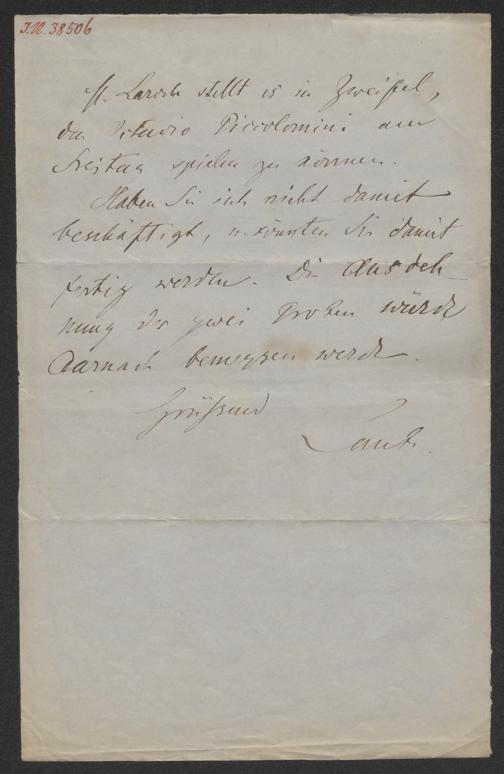 I.N. 38506
H. Laroche stellt es in Zweifel,
den Octavio Piccolomini am
Freitag spielen zu können.
Haben Sie sich nicht damit
beschäftigt, u. könnten Sie damit
fertig werden. Die Ausdeh-
nung der zwei Proben würde
darnach bemessen werden.
Grüßend
Laube.